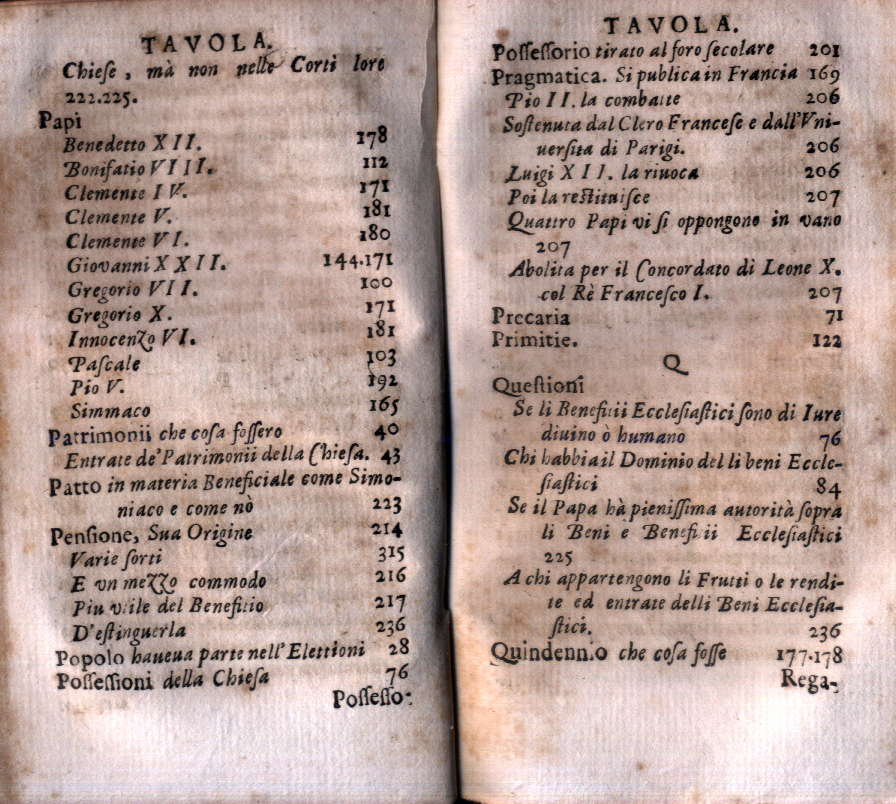 TAVOLA.
Chieſe, mà non nelle Corti loro
222.225.
Papi
Benedetto XII. 178
Bonifatio VIII. 112
Clemente IV. 171
Clemente V. 181
Clemente VI. 180
Giovanni XXII. 144.171
Gregorio VII. 100
Gregorio X. 171
Innocenzo VI. 181
Paſcale 103
Pio V. 192
Simmaco 165
Patrimonii che coſa foſſero 40
Entrate de'Patrimonii della Chieſa. 43
Patto in materia Beneficiale come Simo-
niaco e come nò 223
Penſione, Sua Origine 214
Varie ſorti 315
E vn mezzo commodo 216
Piu vtile del Benefitio 217
D'eſtinguerla 236
Popolo haueua parte nell'Elettioni 28
Poſſeſſioni della Chieſa 76
Poſſeſſo-
TAVOLA.
Poſſeſſorio tirato al foro ſecolare 201
Pragmatica. Si publica in Francia 169
Pio II. la combatte 206
Soſtenuta dal Clero Franceſe e dall'Vni-
uerſita di Parigi. 206
Luigi XII. la riuoca 206
Poi la reſtituiſce 207
Quattro Papi vi ſi oppongono in vano
207
Abolita per il Concordato di Leone X.
col Rè Franceſco I. 207
Precaria 71
Primitie. 122
Q
Queſtioni
Se li Benefitii Eccleſiaſtici ſono di Iure
diuino ò humano 76
Chi habbia il Dominio del li beni Eccle-
ſiaſtici 84
Se il Papa hà pieniſſima autorità ſopra
li Beni e Benefitii Eccleſiaſtici
225
A chi appartengono li Frutti o le rendi-
te ed entrate delli Beni Eccleſia-
ſtici. 236
Quindennio che coſa foſſe 177.178
Rega-